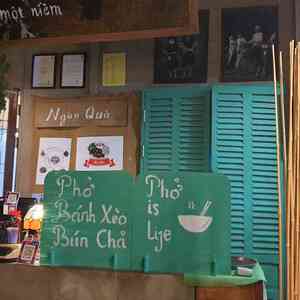 một niềm
Ngàn Quà
Phở
Bánh Xèo
Bún Chả
Phở
is
Life